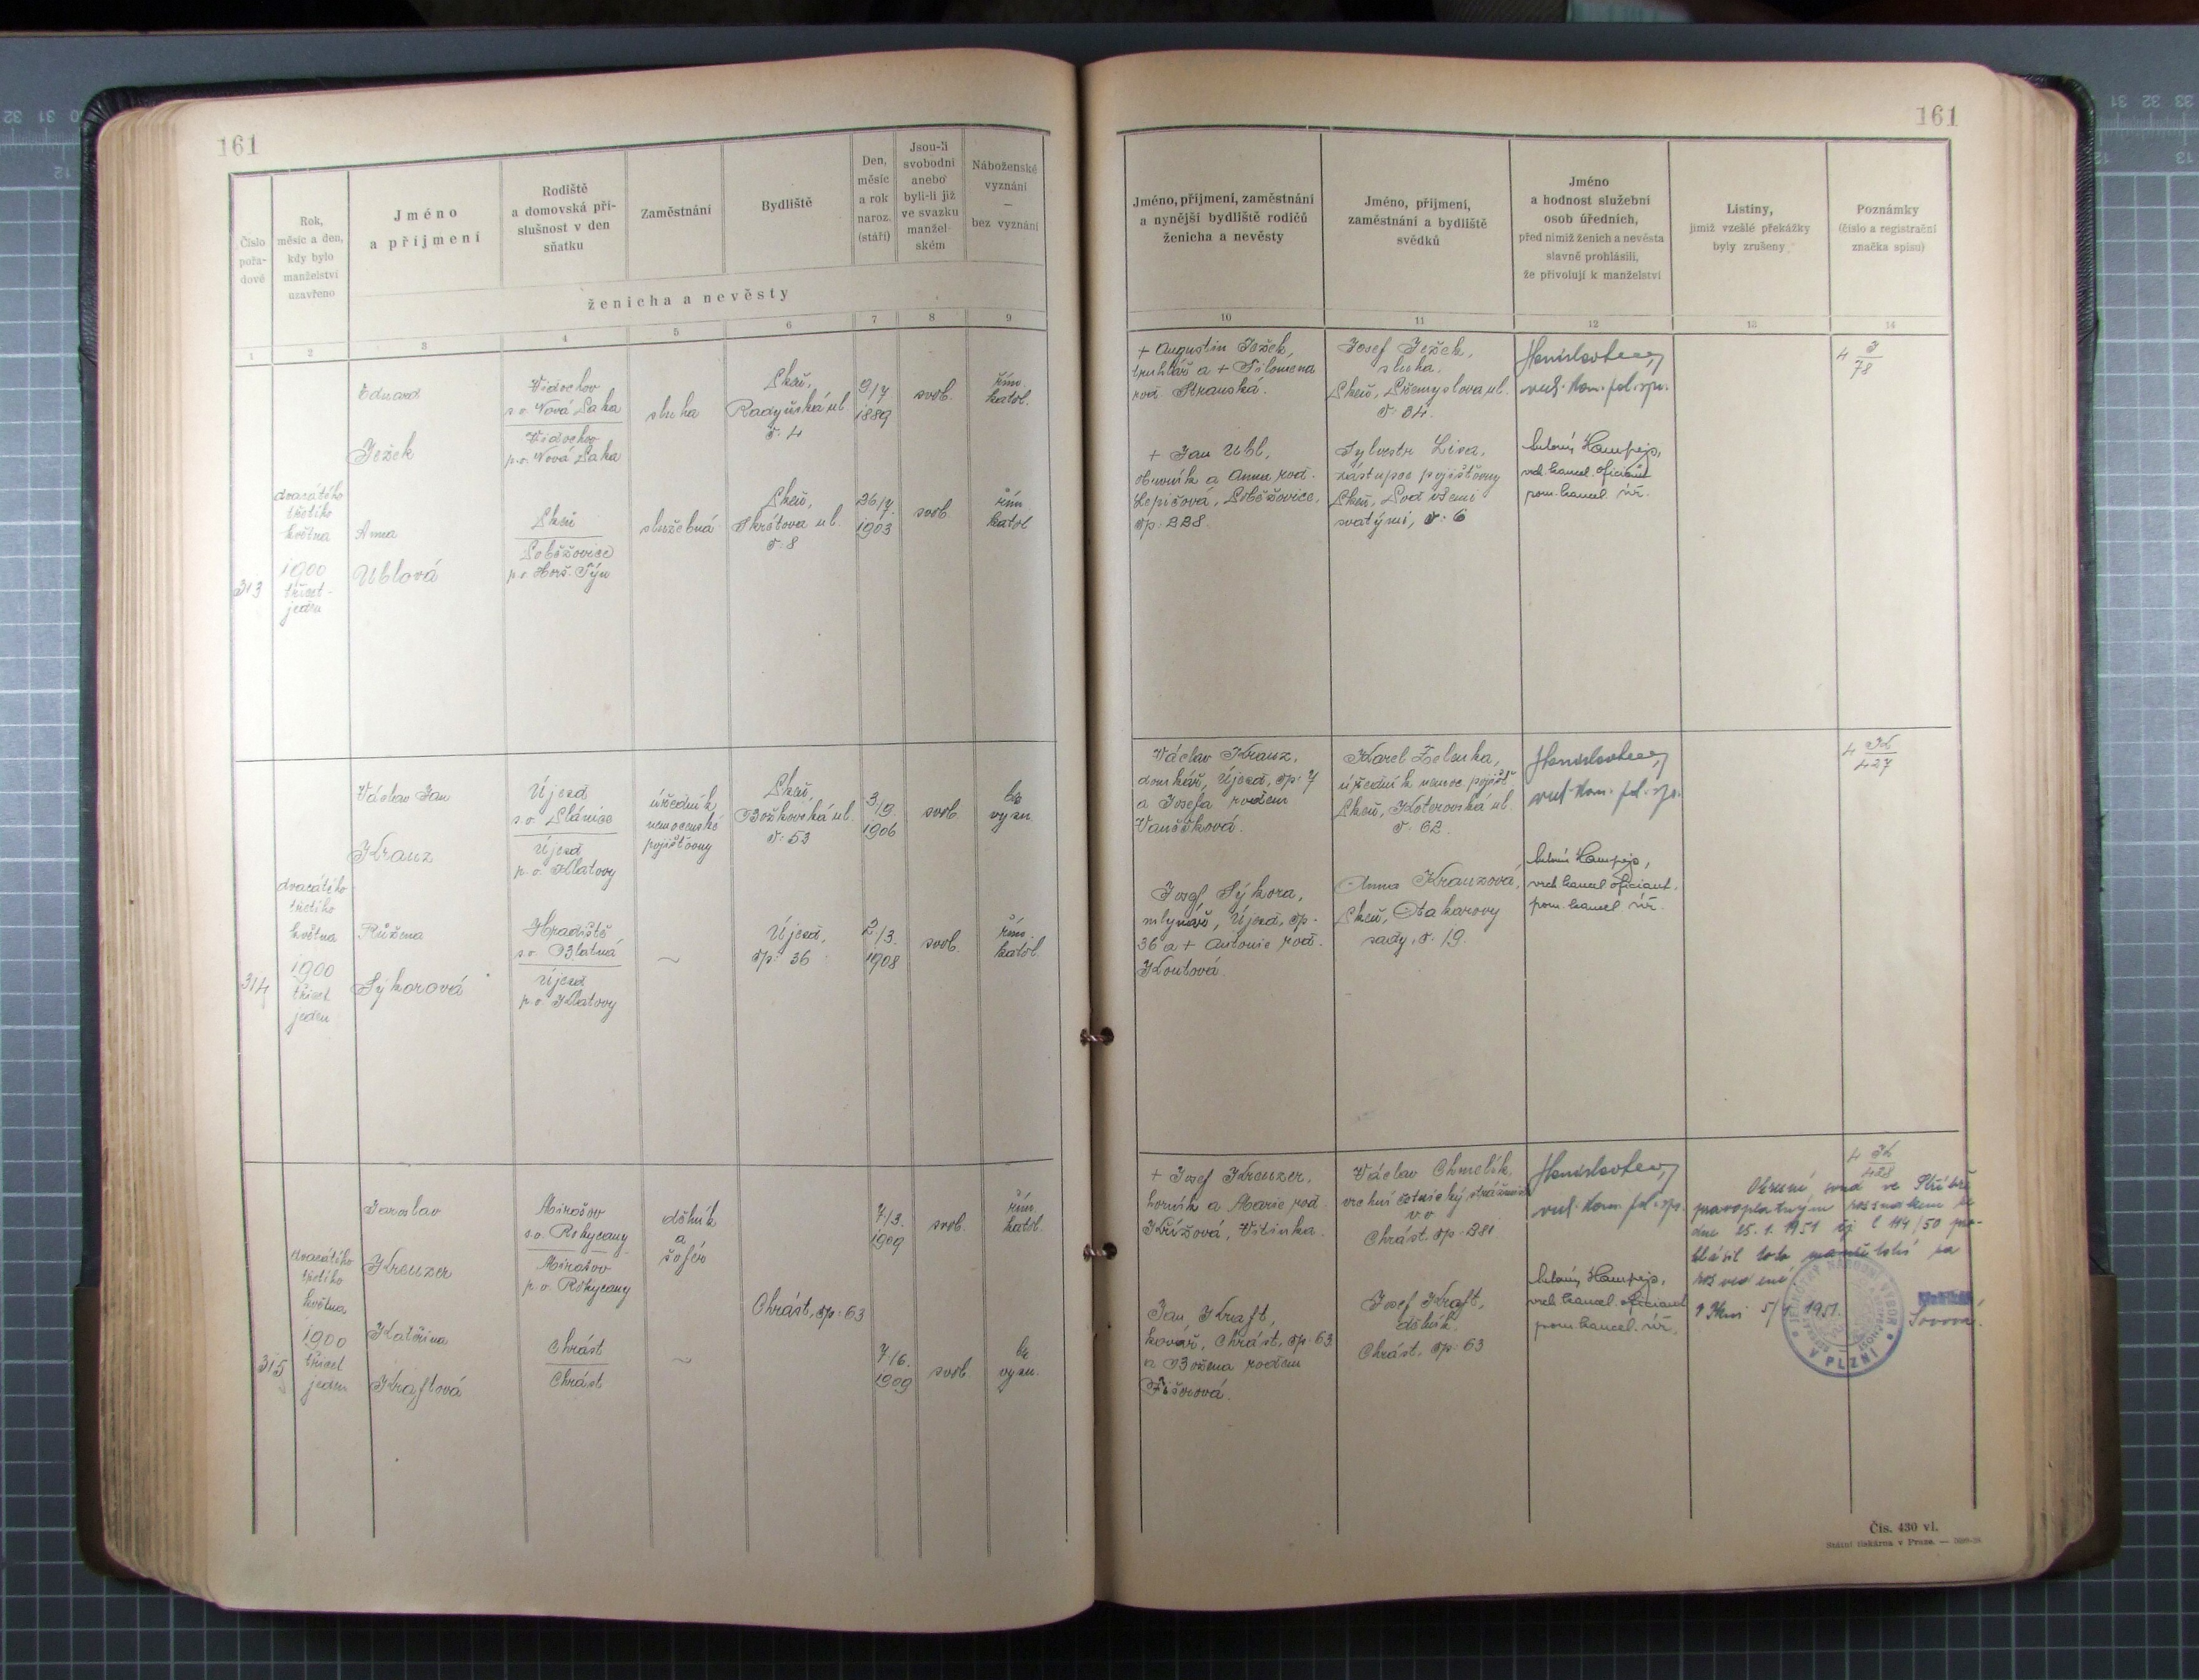 161
161
Číslo
pořa-
dové
Rok,
měsíc a den,
kdy bylo
manželství
uzavřeno
Jméno
a příjmení
Rodiště
a domovská pří-
slušnost v den
sňatku
Zaměstnání
Bydliště
Den,
měsíc
a rok
naroz.
(stáří)
Jsou-li
svobodni
anebo
byli-li již
ve svazku
manžel-
ském
Náboženské
vyznání
—
bez vyznání
ženicha a nevěsty
1 2 3 4 5 6 7 8 9
Jméno, příjmení, zaměstnání
a nynější bydliště rodičů
ženicha a nevěsty
Jméno, příjmení,
zaměstnání a bydliště
svědků
Jméno
a hodnost služební
osob úředních,
před nimiž ženich a nevěsta
slavně prohlásili,
že přivolují k manželství
Listiny,
jimiž vzešlé překážky
byly zrušeny
Poznámky
(číslo a registrační
značka spisu)
10 11 12 13 14
313
dvacátého
třetího
května
1900
třicet-
jeden
Eduard
Ježek
Vidochov
s.o. Nová Paka
Vidochov
p.o. Nová Paka
sluha
Plzeň,
Radyňská ul.
č. 4
9/7
1889
svob.
řím.
katol.
Anna
Ublová
Plzeň
p.o. Horš. Týn
služebná
Plzeň,
Škrétova ul.
č. 8
26/7.
1903
svob.
řím.
katol.
+ Augustin Ježek,
truhlář a + Filomena
roz. Stranská.
+ Jan Ubl,
obuvník a Anna roz.
čp. 228.
Josef Ježek,
sluha.
Plzeň, Přemyslova ul.
č. 34.
Sylvestr Lisa,
zástupce pojišťovny
Plzeň, Pod všemi
svatými, č. 6
Antonín Hampejs,
vrch. kancel. oficiant
pom. kancel. úř.
4 J
78
314
dvacátého
třetího
května
1900
třicet
jeden
Václav Jan
Kranz
Újezd
s.o. Plánice
Újezd
p.o. Klatovy
úředník
nemocenské
pojišťovny
Plzeň,
Božkovská ul.
č. 53
3/9.
1906
svob.
bez
vyzn.
Růžena
Sýkorová
Hradiště
s.o. Blatná
Újezd
p.o. Klatovy
~
Újezd,
čp. 36
2/3.
1908
svob.
řím.
katol.
Václav Kranz,
domkář, Újezd, čp. 7
a Josefa rozem
Vaněčková.
Josef Sýkora,
mlynář, Újezd, čp.
36 a + Antonie roz.
Koutová.
Karel Zelenka,
úředník nemoc. pojišť.
Plzeň, Koterovská ul.
č. 62.
Anna Kranzová,
Plzeň, Otakarovy
sady, č. 19.
Antonín Hampejs,
vrch. kancel. oficiant.
pom. kancel. úř.
4 K
427
315
dvacátého
třetího
května
1900
třicet
jeden
Jaroslav
Kreuzer
Mirošov
s.o. Rokycany
Mirošov
p.o. Rokycany
dělník
a
šofér
Chrást, čp. 63
7/3.
1909
svob.
řím.
katol.
Kateřina
Kraftová
Chrást
Chrást
~
7/6.
1909
svob.
bez
vyzn.
+ Josef Kreuzer,
horník a Marie roz.
Křížová, Vitinka.
Jan Kraft,
kovář, Chrást, čp. 63
a Božena rozem
Fišerová.
Václav Chmelík,
vrchní četnický strážmistr
v.v.
Chrást, čp. 281
Josef Kraft,
dělník.
Chrást, čp. 63
Antonín Hampejs,
vrch. kancel. oficiant
pom. kancel. úř.
4 K
428
Okresní soud ve Stříbře
pravoplatným rozsudkem ze
dne 25.1.1951 čj C 114/50 pro-
hlásil toto manželství za
rozvedené.
V Plzni 5/4 1951.
JEDNOTNÝ NÁRODNÍ VÝBOR
V PLZNI
Čís. 430 vl.
Státní tiskárna v Praze. —